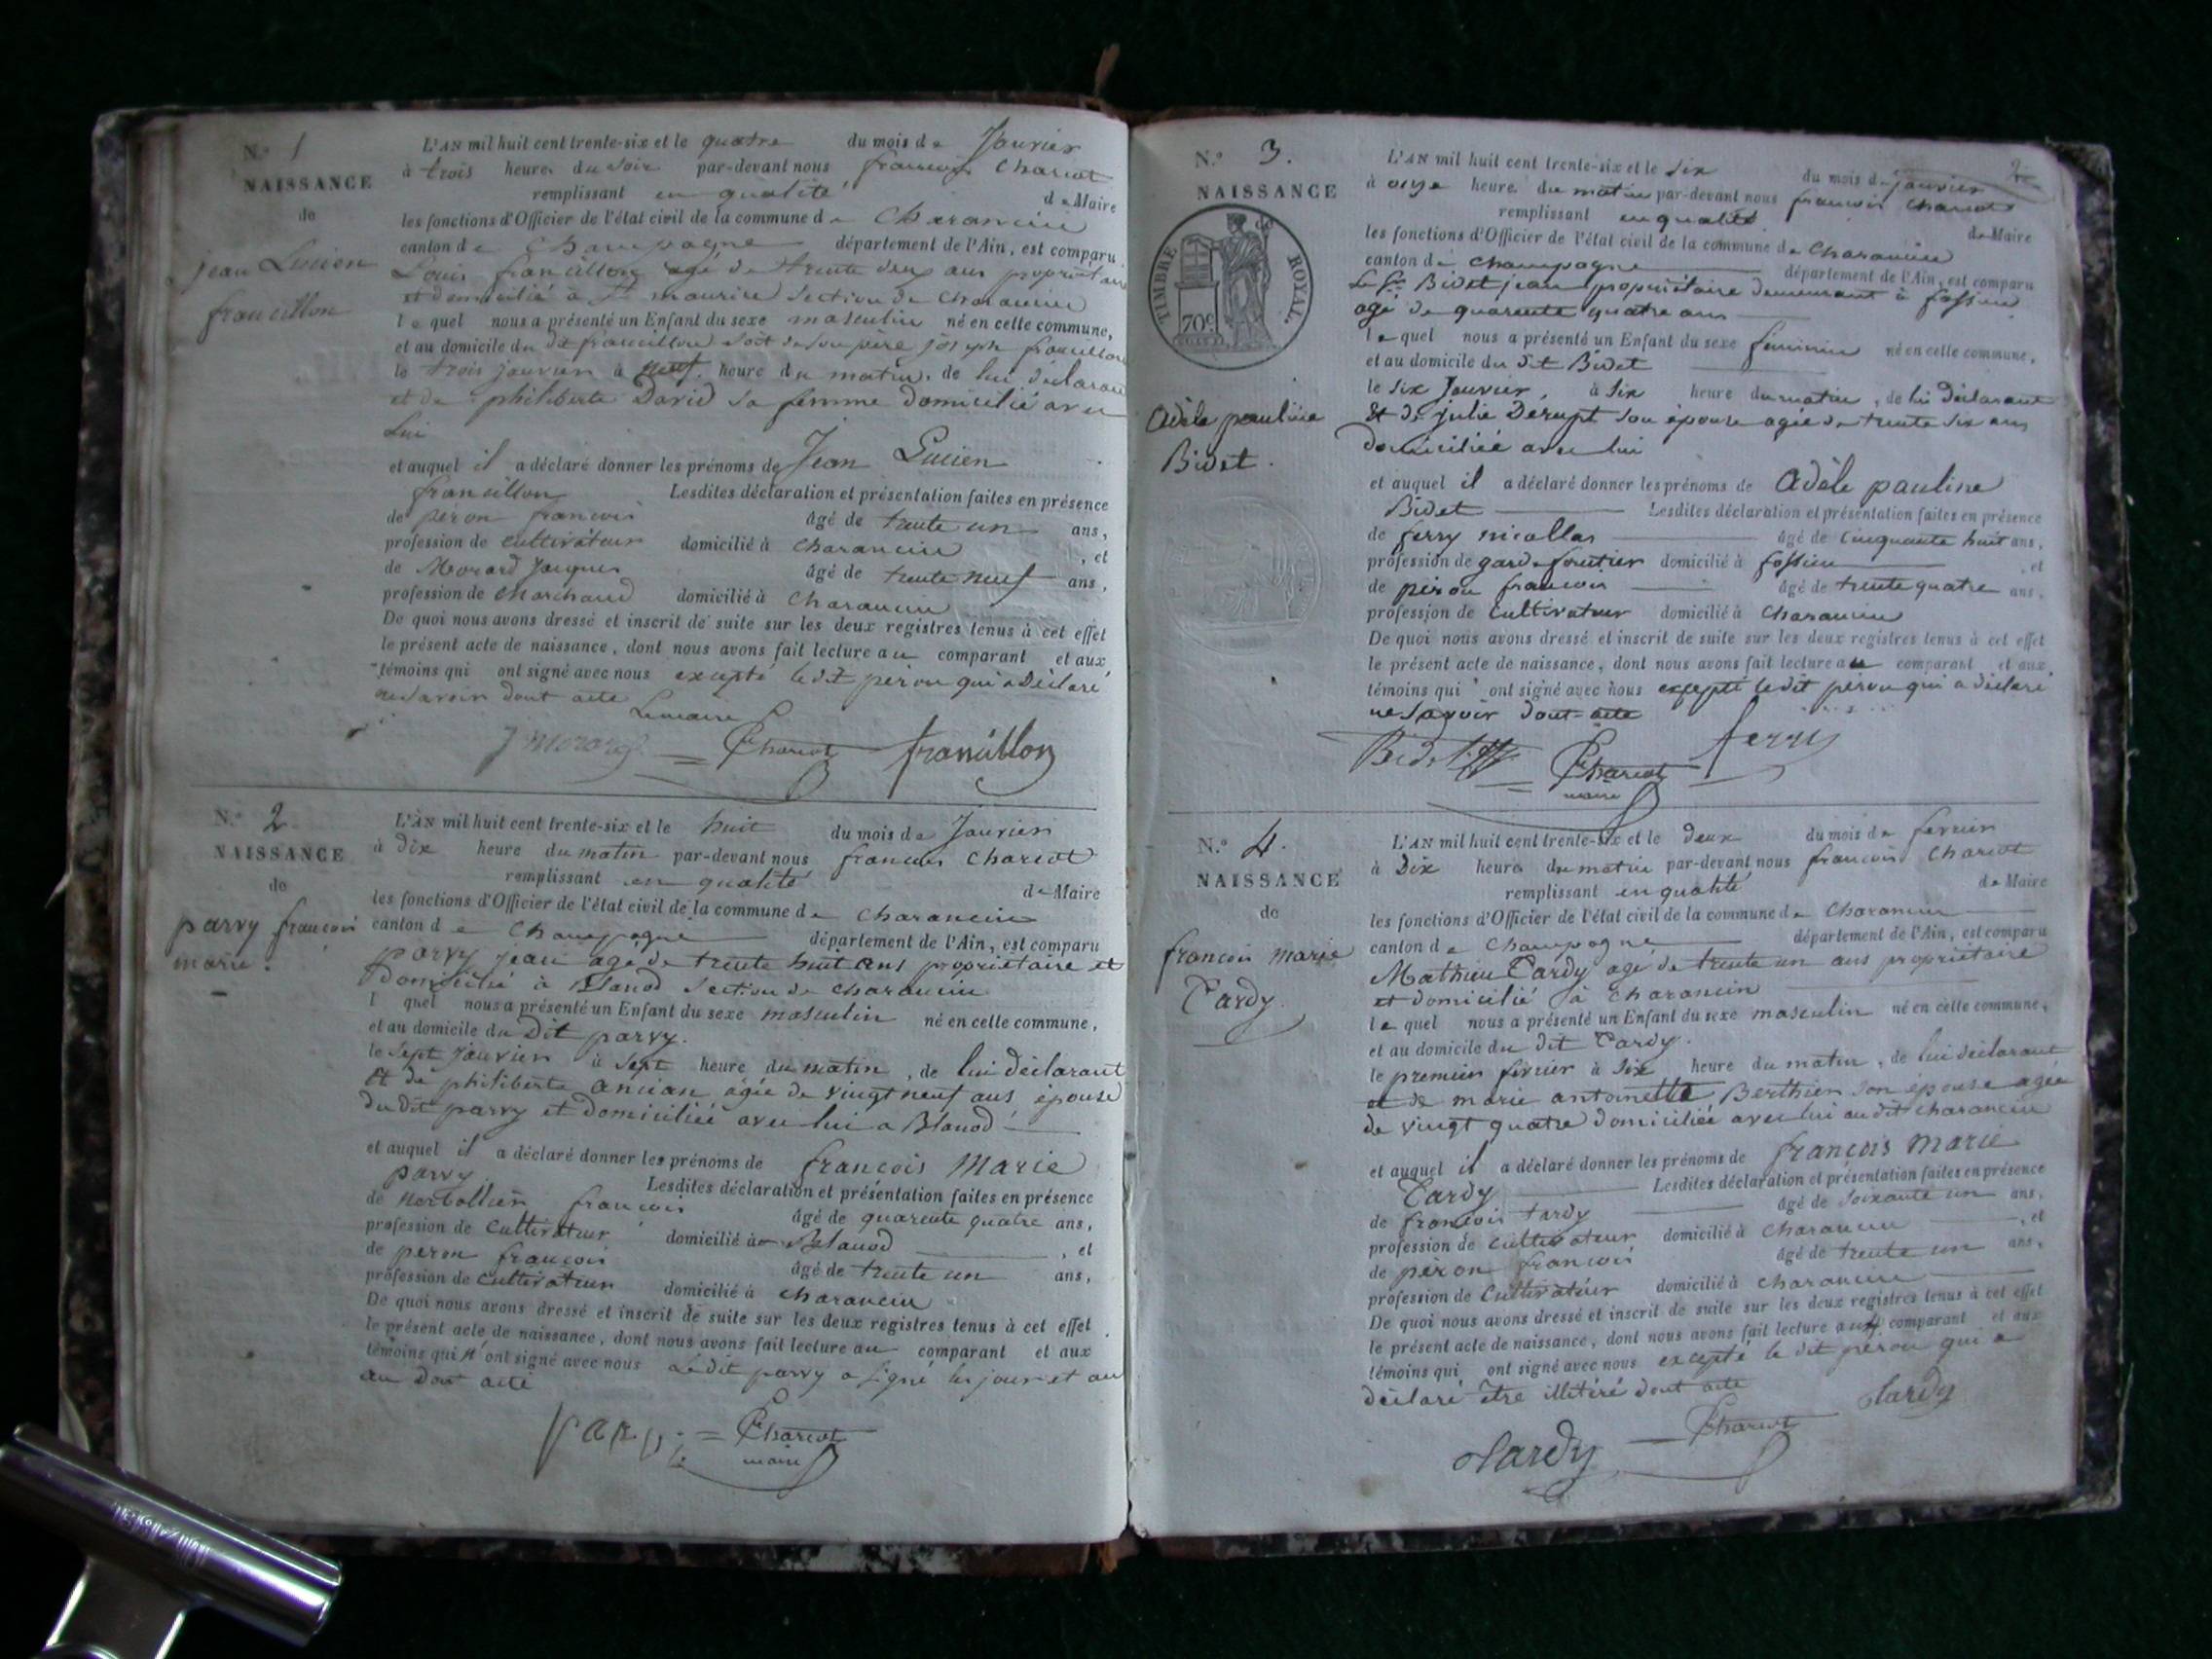 N.º 1
NAISSANCE
de
jean Lucien
francillon
L'AN mil huit cent trente-six et le quatre du mois de Janvier
à trois heures du soir par-devant nous francois Chariot
remplissant en qualité de Maire
les fonctions d'Officier de l'état civil de la commune de Charancin
canton de Champagne département de l'Ain, est comparu
Louis francillon agé de trente deux ans propriétaire
et domicilié à St maurice Section de Charancin
lequel nous a présenté un Enfant du sexe masculin né en cette commune,
et au domicile du dit francillon soit de son père joseph francillon
le trois janvier à neuf heure du matin, de lui déclarant
et de philiberte David sa femme domicilié avec
lui
et auquel il a déclaré donner les prénoms de Jean Lucien
francillon Lesdites déclaration et présentation faites en présence
de péron francois âgé de trente un ans,
profession de cultivateur domicilié à charancin , et
de Morard Jacques âgé de trente neuf ans,
profession de Marchand domicilié à charancin
De quoi nous avons dressé et inscrit de suite sur les deux registres tenus à cet effet
le présent acte de naissance, dont nous avons fait lecture au comparant et aux
témoins qui ont signé avec nous excepté le dit péron qui a déclaré
ne savoir dont acte Le maire
J Morard Chariot francillon
N.º 2
NAISSANCE
de
parvy francois
marie.
L'AN mil huit cent trente-six et le huit du mois de Janvier
à dix heure du matin par-devant nous francois Chariot
remplissant en qualité de Maire
les fonctions d'Officier de l'état civil de la commune de charancin
canton de Champagne département de l'Ain, est comparu
parvy jean agé de trente huit ans propriétaire et
domicilié à Blanod Section de charancin
l quel nous a présenté un Enfant du sexe masculin né en cette commune,
et au domicile du Dit parvy.
le sept janvier à sept heure du matin, de lui déclarant
et de philiberte ancian agée de vingt neuf ans épouse
du dit parvy et domiciliée avec lui a Blanod
et auquel il a déclaré donner les prénoms de francois Marie
parvy Lesdites déclaration et présentation faites en présence
de francois âgé de quarente quatre ans,
profession de cultivateur domicilié à Blanod , et
de peron francois âgé de trente un ans,
profession de cultivateur domicilié à charancin
De quoi nous avons dressé et inscrit de suite sur les deux registres tenus à cet effet
le présent acte de naissance, dont nous avons fait lecture au comparant et aux
témoins qui n'ont signé avec nous Le dit parvy a signé les jour et an
dont acte
Chariot
maire
2
N.º 3.
NAISSANCE
TIMBRE ROYAL.
70c
Adèle pauline
Bidet.
L'AN mil huit cent trente-six et le six du mois de janvier
à onze heure du matin par-devant nous francois chariot
remplissant en qualité de Maire
les fonctions d'Officier de l'état civil de la commune de Charancin
canton de champagne département de l'Ain, est comparu
Le Sr Bidet jean propriétaire demeurant à fossieu
agé de quarente quatre ans
lequel nous a présenté un Enfant du sexe féminin né en cette commune,
et au domicile du dit Bidet
le six Janvier, à six heure du matin, de lui déclarant
et de julie Derupt son épouse agée de trente six ans
domiciliée avec lui
et auquel il a déclaré donner les prénoms de Adèle pauline
Bidet Lesdites déclaration et présentation faites en présence
de ferry nicollas âgé de cinquante huit ans,
profession de garde forestier domicilié à fossieu , et
de péron francois âgé de trente quatre ans,
profession de cultivateur domicilié à charancin
De quoi nous avons dressé et inscrit de suite sur les deux registres tenus à cet effet
le présent acte de naissance, dont nous avons fait lecture au comparant et aux
témoins qui ont signé avec nous excepté le dit péron qui a déclaré
ne savoir dont acte
Bidet Chariot ferry
maire
N.º 4.
NAISSANCE
de
francois marie
Tardy.
L'AN mil huit cent trente-six et le deux du mois de fevrier
à Dix heure du matin par-devant nous francois Chariot
remplissant en qualité de Maire
les fonctions d'Officier de l'état civil de la commune de Charancin
canton de Champagne département de l'Ain, est comparu
Mathieu Tardy agé de trente un ans propriétaire
et domicilié à charancin
lequel nous a présenté un Enfant du sexe masculin né en cette commune,
et au domicile du dit Tardy.
le premier février à six heure du matin, de lui déclarant
et de marie antoinette Berthier son épouse agée
de vingt quatre domiciliée avec lui au dit charancin
et auquel il a déclaré donner les prénoms de francois Marie
Tardy Lesdites déclaration et présentation faites en présence
de francois tardy âgé de soixante un ans,
profession de cultivateur domicilié à charancin , et
de péron francois âgé de trente un ans,
profession de cultivateur domicilié à charancin
De quoi nous avons dressé et inscrit de suite sur les deux registres tenus à cet effet
le présent acte de naissance, dont nous avons fait lecture aux comparant et aux
témoins qui ont signé avec nous excepté le dit péron qui a
déclaré être illitéré dont acte
tardy Chariot tardy